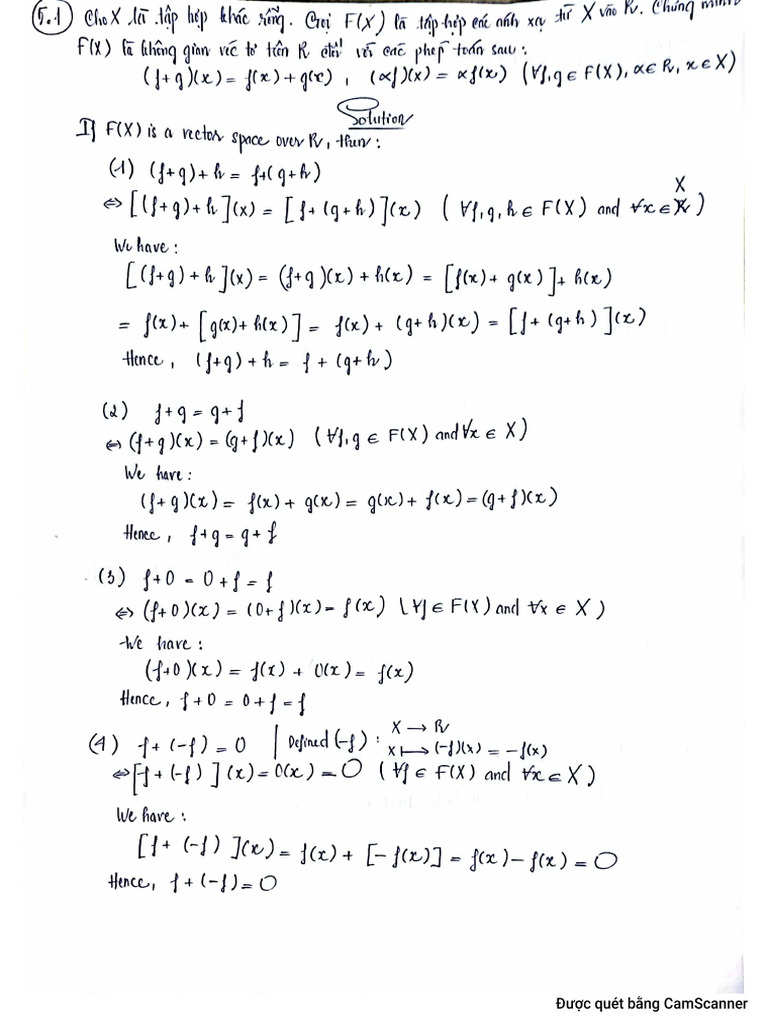 5.1 Cho X là tập hợp khác rỗng. Gọi F(X) là tập hợp các ánh xạ từ X vào R. Chứng minh
F(X) là không gian véc tơ trên R đối với các phép toán sau:
(f+g)(x) = f(x) + g(x) , (αf)(x) = αf(x) (∀f,g ∈ F(X), α∈ R, x ∈ X)
Solution
If F(X) is a vector space over R, then:
(1) (f+g)+h = f+(g+h)
X
⇔ [(f+g)+h](x) = [f+(g+h)](x) ( ∀f,g,h ∈ F(X) and ∀x ∈ R )
We have:
[(f+g)+h](x) = (f+g)(x) + h(x) = [f(x)+ g(x)]+ h(x)
= f(x)+ [g(x)+h(x)] = f(x)+ (g+h)(x) = [f+(g+h)](x)
Hence, (f+g)+h = f + (g+h)
(2) f+g = g+f
⇔ (f+g)(x) = (g+f)(x) (∀f,g ∈ F(X) and ∀x ∈ X)
We have:
(f+g)(x) = f(x) + g(x) = g(x) + f(x) = (g+f)(x)
Hence, f+g = g+f
(3) f+0 = 0+f = f
⇔ (f+0)(x) = (0+f)(x) = f(x) (∀f ∈ F(X) and ∀x ∈ X)
We have:
(f+0)(x) = f(x) + 0(x) = f(x)
Hence, f+0 = 0+f = f
(4) f+(-f) = 0 | Defined (-f) : X → R
x ⟼ (-f)(x) = -f(x)
⇔ [f+(-f)](x) = 0(x) = 0 (∀f ∈ F(X) and ∀x ∈ X)
We have:
[f+(-f)](x) = f(x) + [-f(x)] = f(x) - f(x) = 0
Hence, f+(-f) = 0
Được quét bằng CamScanner